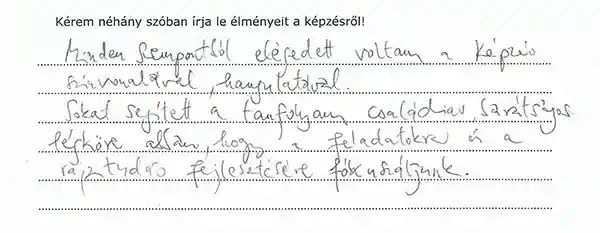 Kérem néhány szóban írja le élményeit a képzésről!
Minden szempontból elégedett voltam a képzés
színvonalával, hangulatával.
Sokat segített a tanfolyam családias, barátságos
légköre abban, hogy a feladatokra és a
rajztudás fejlesztésére fókuszáljunk.